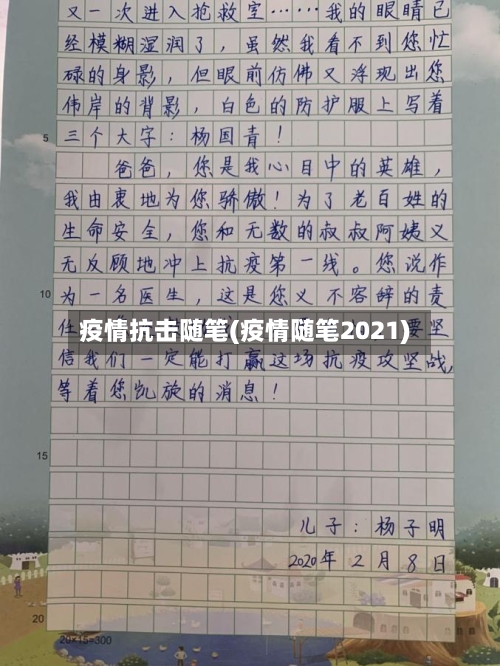 又一次进入抢救室……我的眼睛已
经模糊湿润了，虽然我看不到您忙
碌的身影，但眼前仿佛又浮现出您
伟岸的背影，白色的防护服上写着
5 三个大字：杨国青！
爸爸，您是我心目中的英雄，
我由衷地为您骄傲！为了老百姓的
生命安全，您和无数的叔叔阿姨义
无反顾地冲上抗疫第一线。您说作
10 为一名医生，这是您义不容辞的责
任
疫情抗击随笔(疫情随笔2021)
要坚
信我们一定能打赢这场抗疫攻坚战，
等着您凯旋的消息！
15
儿子：杨子明
2020年2月8日
20
20×15=300